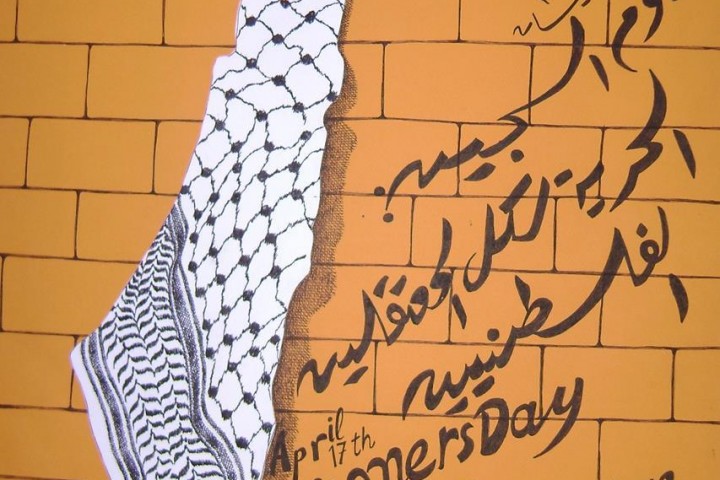 وم السجين
الحرية لكل المعتقلين
الفلسطينيين
April
17th
oners Day